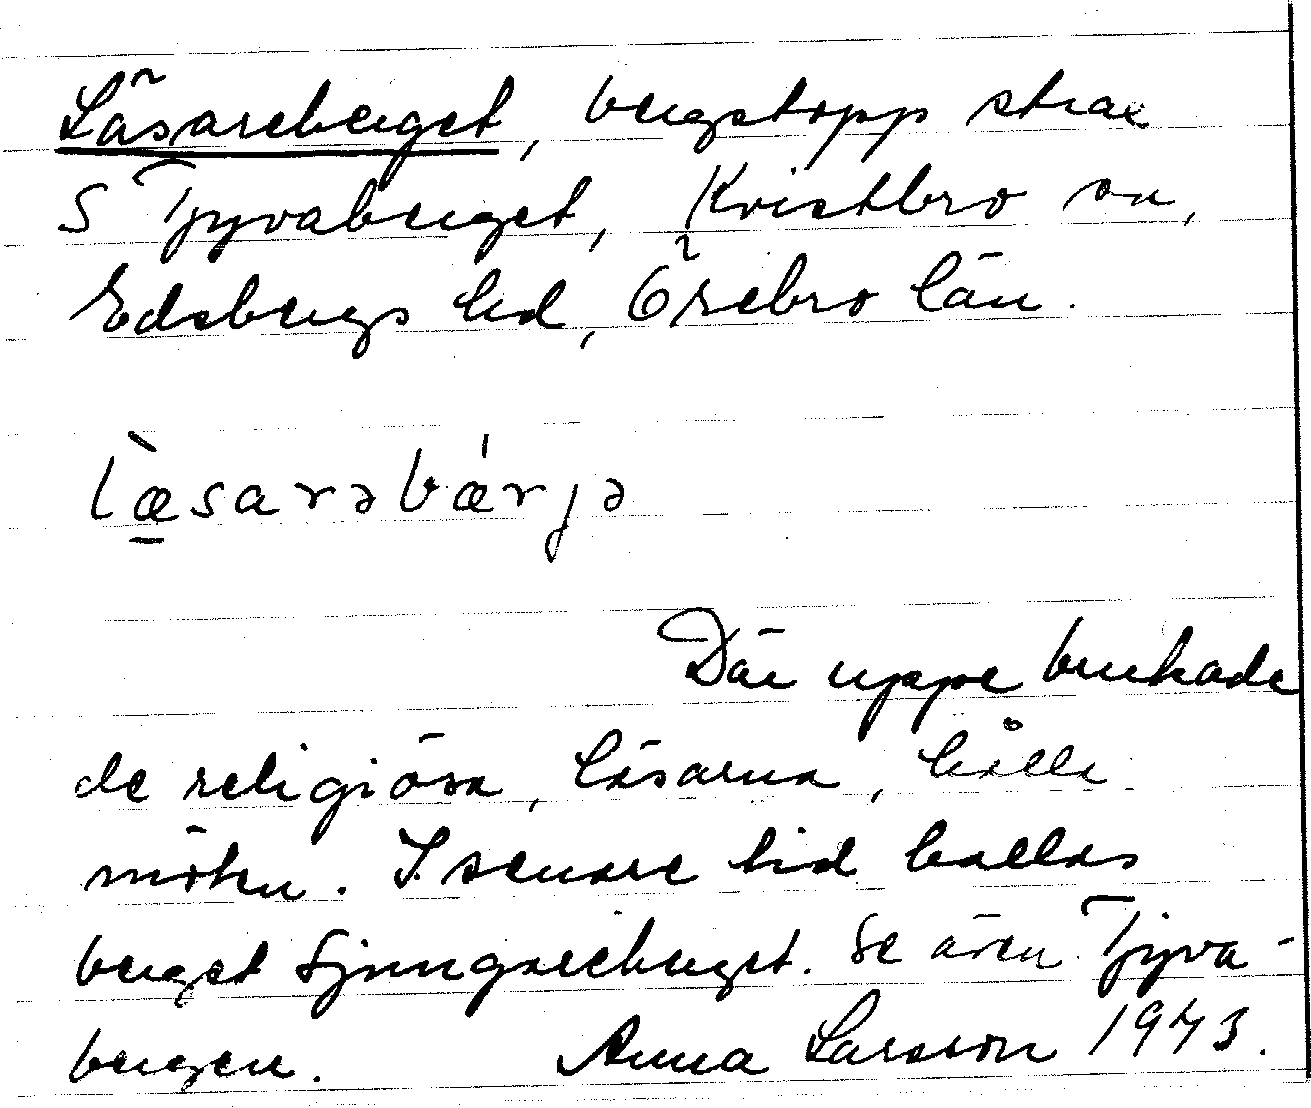 Läsareberget, bergstopp strax
S Tjyvaberget, Kvistbro sn,
Edsbergs hd, Örebro län.
læ̀sarəbǽrjə
Där uppe brukade
de religiösa, läsarna, hålla
möten. I senare tid kallas
berget Sjungareberget. Se även Tjyva-
bergen. Anna Larsson 1973.